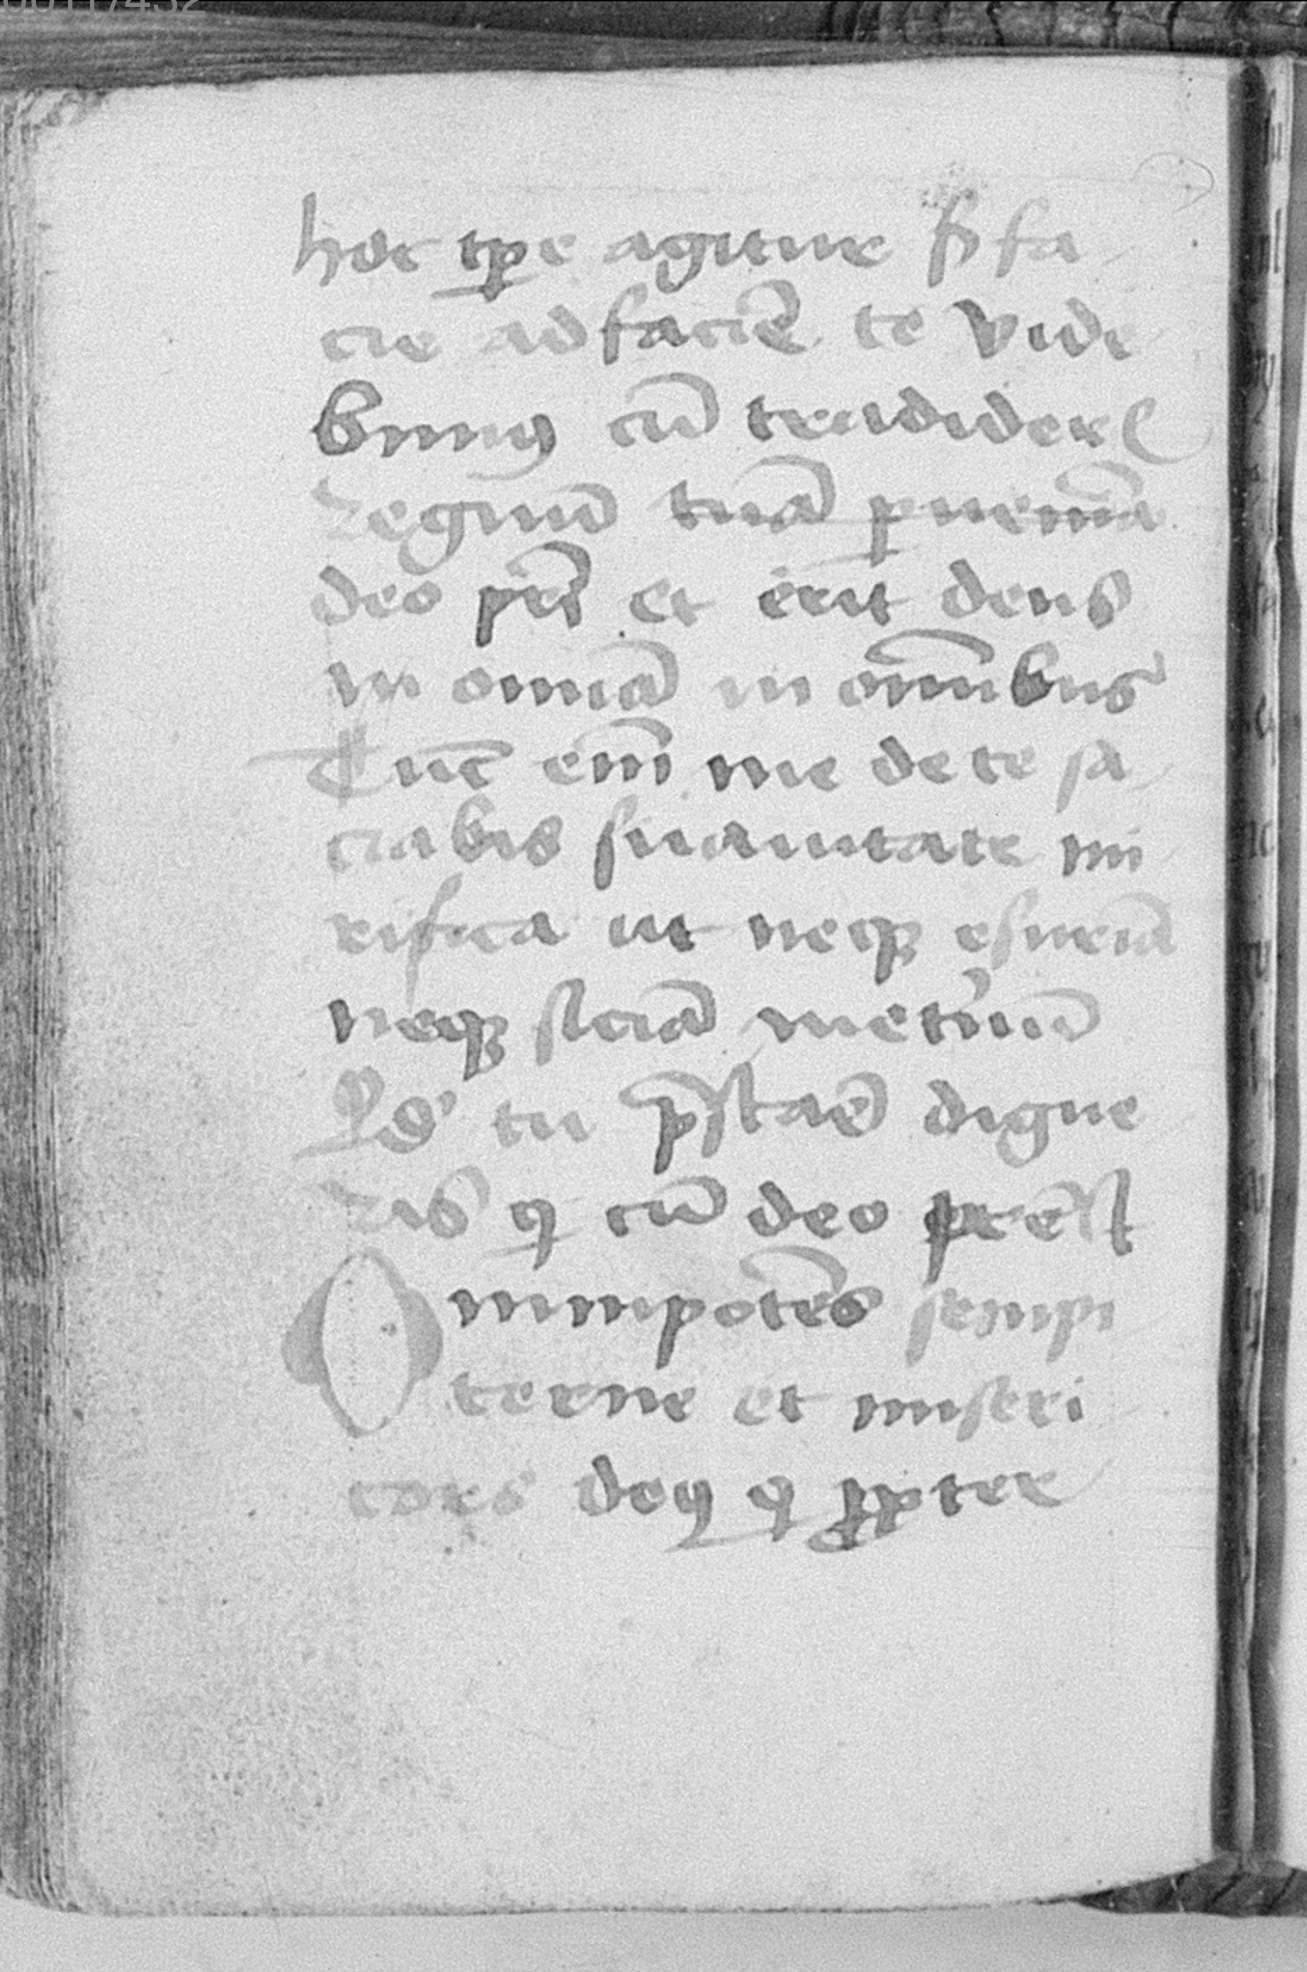 hoc tp̲e agitur sʒ fa
cie ad faciē te vide
bimꝰ cū tradider̃
regnū tuā p̲uenniā
deo pr̃i et erit deus
in omia in om̄ibus
Tūc em̄ me de te sa
ciabis suauitate mi
rifica ut neqꝫ esuriā
neqꝫ siciā inet̾nū
Qd' tu p̄stare digne
ris q̲ cū deo pr̃e ⁊ sp̃
Omnipotēs sempi
terne et miseri
cors deꝰ q̲ ꝓpter